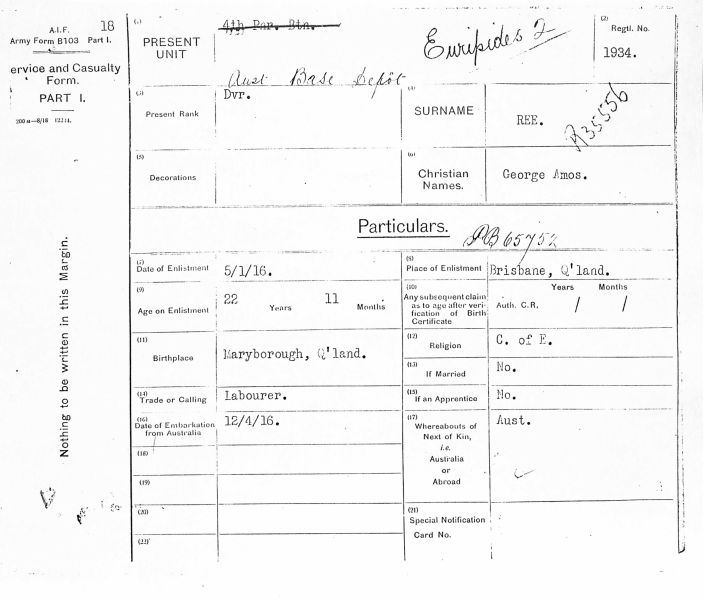 A.I.F. 18
Army Form B103 Part I.
ervice and Casualty
Form.
PART I.
200 M—8/18 12214.
Nothing to be written in this Margin.
(1) PRESENT UNIT
4th Par. Btn.
Aust Base Depôt
Euripides 2
(2) Regtl. No.
1934.
(3) Present Rank
Dvr.
(4) SURNAME
REE.
R35556
(5) Decorations
(6) Christian Names.
George Amos.
Particulars.
PB 65752
(7) Date of Enlistment
5/1/16.
(8) Place of Enlistment
Brisbane, Q'land.
(9) Age on Enlistment
22 Years 11 Months
(10) Any subsequent claim as to age after verification of Birth Certificate
Years Months
Auth. C.R. / /
(11) Birthplace
Maryborough, Q'land.
(12) Religion
C. of E.
(13) If Married
No.
(14) Trade or Calling
Labourer.
(15) If an Apprentice
No.
(16) Date of Embarkation from Australia
12/4/16.
(17) Whereabouts of Next of Kin, i.e. Australia or Abroad
Aust.
(18)
(19)
(20)
(21) Special Notification Card No.
(22)